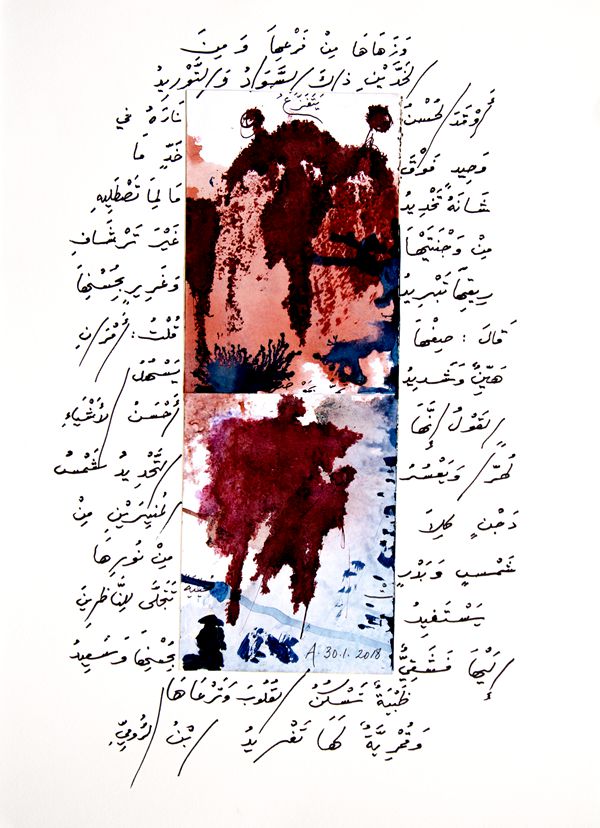 وَزَهَاهَا مِنْ فَرْعِهَا وَمِنَ
الخَدَّيْنِ ذاكَ السَّوَادُ وَالتَّوْرِيدُ
أَوْقَدَ الحُسْنُ نَارَهُ في
وَحِيدٍ فَوْقَ خَدٍّ مَا
شَانَهُ تَخْدِيدُ مَا لِمَا تَصْطَلِيهِ
مِنْ وَجْنَتَيْهَا غَيْرَ تَرْشَافِ
رِيقِهَا تَبْرِيدُ وَغَرِيرٍ بِحُسْنِهَا
قَالَ : صِفْهَا قُلْتُ : أَمْرَانِ
هَيِّنٌ وَشَدِيدُ يَسْهُلُ
القَوْلُ إِنَّهَا أَحْسَنُ الأَشْيَاءِ
طُرّاً وَيَعْسُرُ التَّحْدِيدُ شَمْسُ
دَجْنٍ كِلاَ المُنِيرَيْنِ مِنْ
شَمْسٍ وَبَدْرٍ مِنْ نُورِهَا
يَسْتَفِيدُ تَتَجَلَّى لِلنَّاظِرِينَ
إِلَيْهَا فَشَقِيٌّ بِحُسْنِهَا وَسَعِيدُ
ظَبْيَةٌ تَسْكُنُ القُلُوبَ وَتَرْعَاهَا
وَقُمْرِيَّةٌ لَهَا تَغْرِيدُ ابْنُ الرُّومِيِّ
A. 30.1. 2018